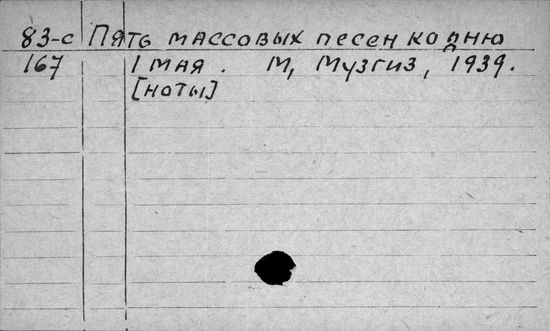 83-с Пять массовых песен ко дню
167 1 мая. М, Музгиз, 1939.
[ноты]